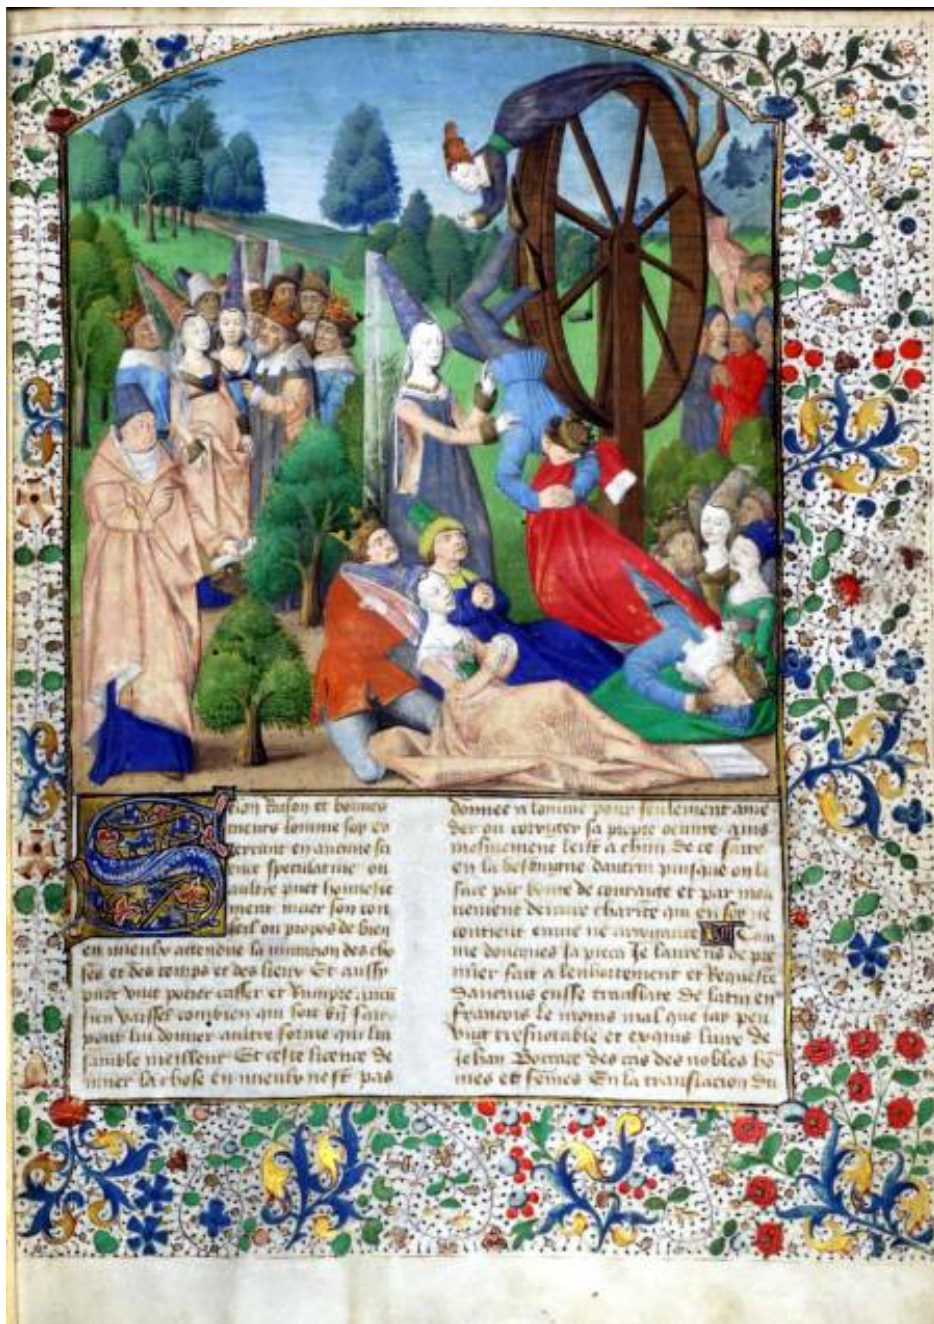 Selon Raison et bonnes
meurs lomme soy ex
ercant en aucune sci
ence speculative ou
aultre puet honneste
ment muer son con
seil ou propos de bien
en mieulx attendue la mutacion des cho
ses et des temps et des lieux Et aussy
puet vng potier casser et Rompre aucu
sien vaissel combien quil soit bn fait
pour lui donner aultre forme qui lui
samble meilleur Et ceste licence de
muer la chose en mieulx nest pas
donnee a lomme pour seulement amē
der ou corriger sa propre oeuure ains
mesmement leist a chun de ce faire
en la besoingne dautrui puisque on la
face par bonte de couraige et par mou
uement de vraie charite qui en soy ne
contient enuie ne arrogance Com
me doncques Ja pieca Je laurens de pre
mier fait a lenhortement et Requeste
daucuns eusse translate de latin en
francois le moins mal que Jay peu
vng tresnotable et exquis liure de
Jehan Bocace des cas des nobles hō
mes et fēmes En la translacion du